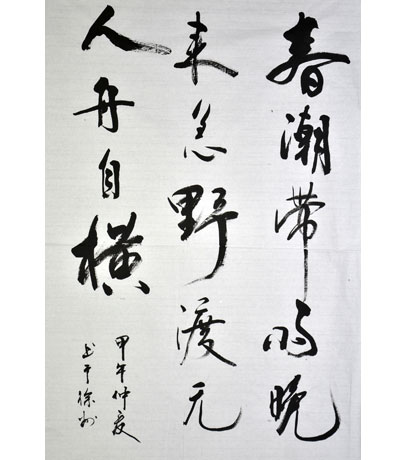 春潮带雨晚
来急野渡无
人舟自横
甲午仲夏
书于徐州